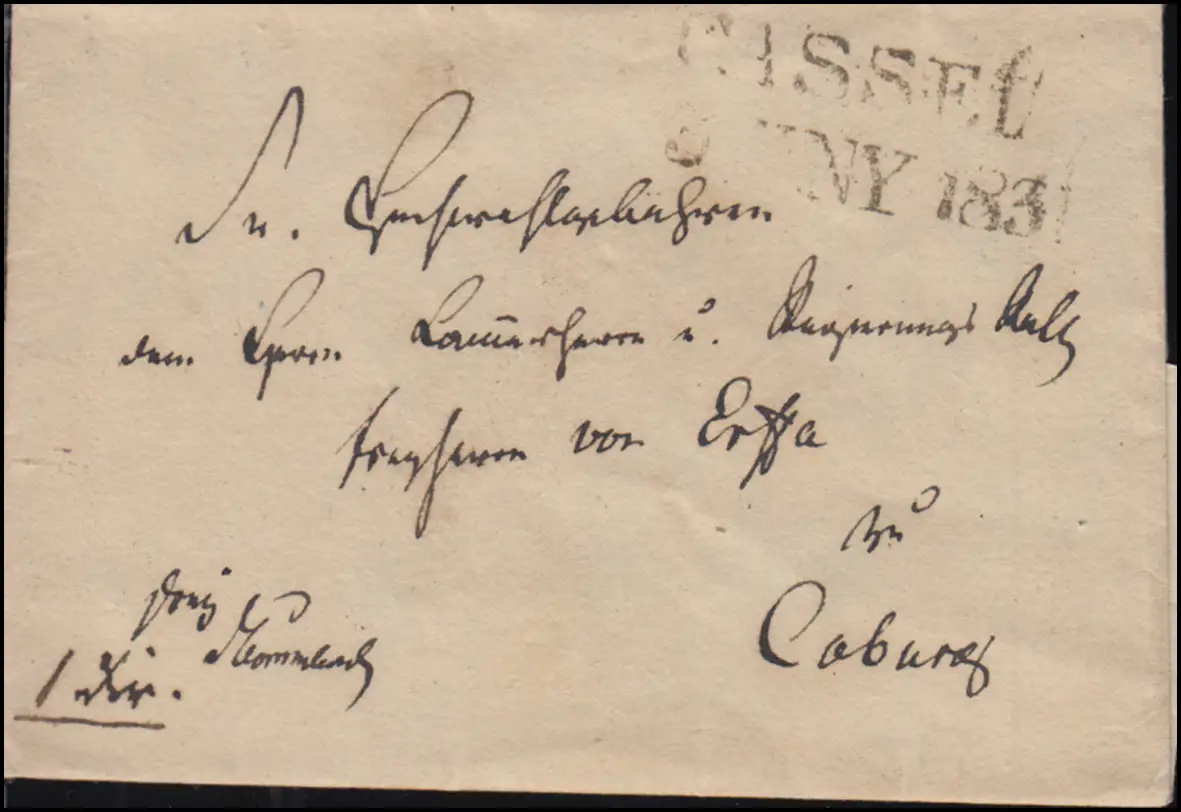 CASSEL
JUNY 183
Sr. Hochwohlgebohren
dem Herrn Kammerherrn u. Regierungs Rath
Freyherrn von Erffa
zu
Coburg
frey